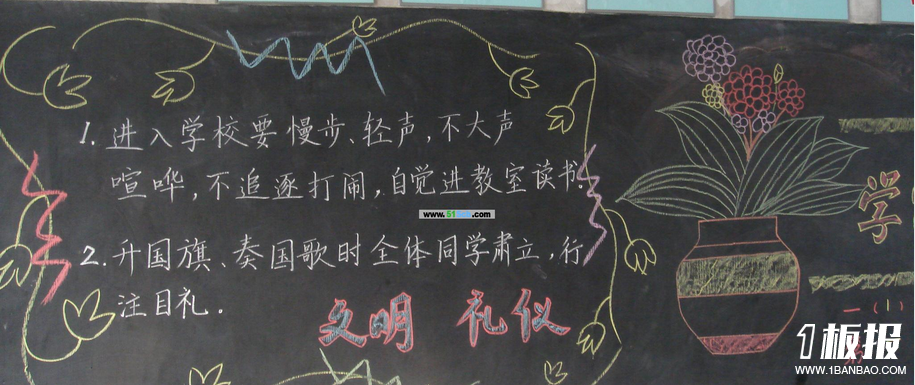 1. 进入学校要慢步、轻声,不大声
喧哗,不追逐打闹,自觉进教室读书。
2. 升国旗、奏国歌时全体同学肃立,行
注目礼。
文明 礼仪
学
一(1)
www.51 .com
1板报
WWW.1BANBAO.COM